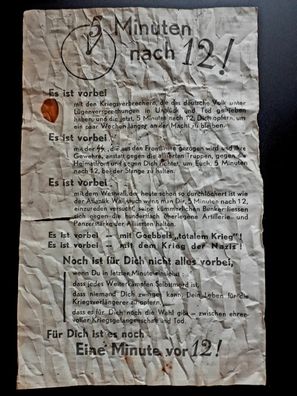 5 Minuten
nach 12!
Es ist vorbei
mit den Kriegsverbrechern, die das deutsche Volk unter
Lügenversprechungen in Unglück und Tod getrieben
haben, und die jetzt, 5 Minuten nach 12, Dich opfern, um
ein paar Wochen länger an der Macht zu bleiben.
Es ist vorbei
mit der SS, die aus den Frontlinie gezogen wird und ihre
Gewehre, anstatt gegen die alliierten Truppen, gegen die
Heimatfront und gegen Dich richtet, um Euch, 5 Minuten
nach 12, bei der Stange zu halten.
Es ist vorbei
mit dem Westwall, der heute schon so durchlöchert ist wie
der Atlantik Wall, doch wenn man Dir, 5 Minuten nach 12,
einzureden versucht, seine kümmerlichen Bunker besten
sich gegen die hundertfach überlegene Artillerie- und
Panzerstärke der Alliierten halten.
Es ist vorbei -- mit Goebbels „totalem Krieg"!
Es ist vorbei -- mit dem Krieg der Nazis!
Noch ist für Dich nicht alles vorbei,
wenn Du in letzter Minute einsiehst
dass jedes Weiterkämpfen Selbstmord ist,
dass niemand Dich zwingen kann, Dein Leben für die
Kriegsverlängerer zu opfern,
dass es für Dich noch die Wahl gibt -- zwischen ehren-
voller Kriegsgefangenschaft und Tod.
Für Dich ist es noch
Eine Minute vor 12!